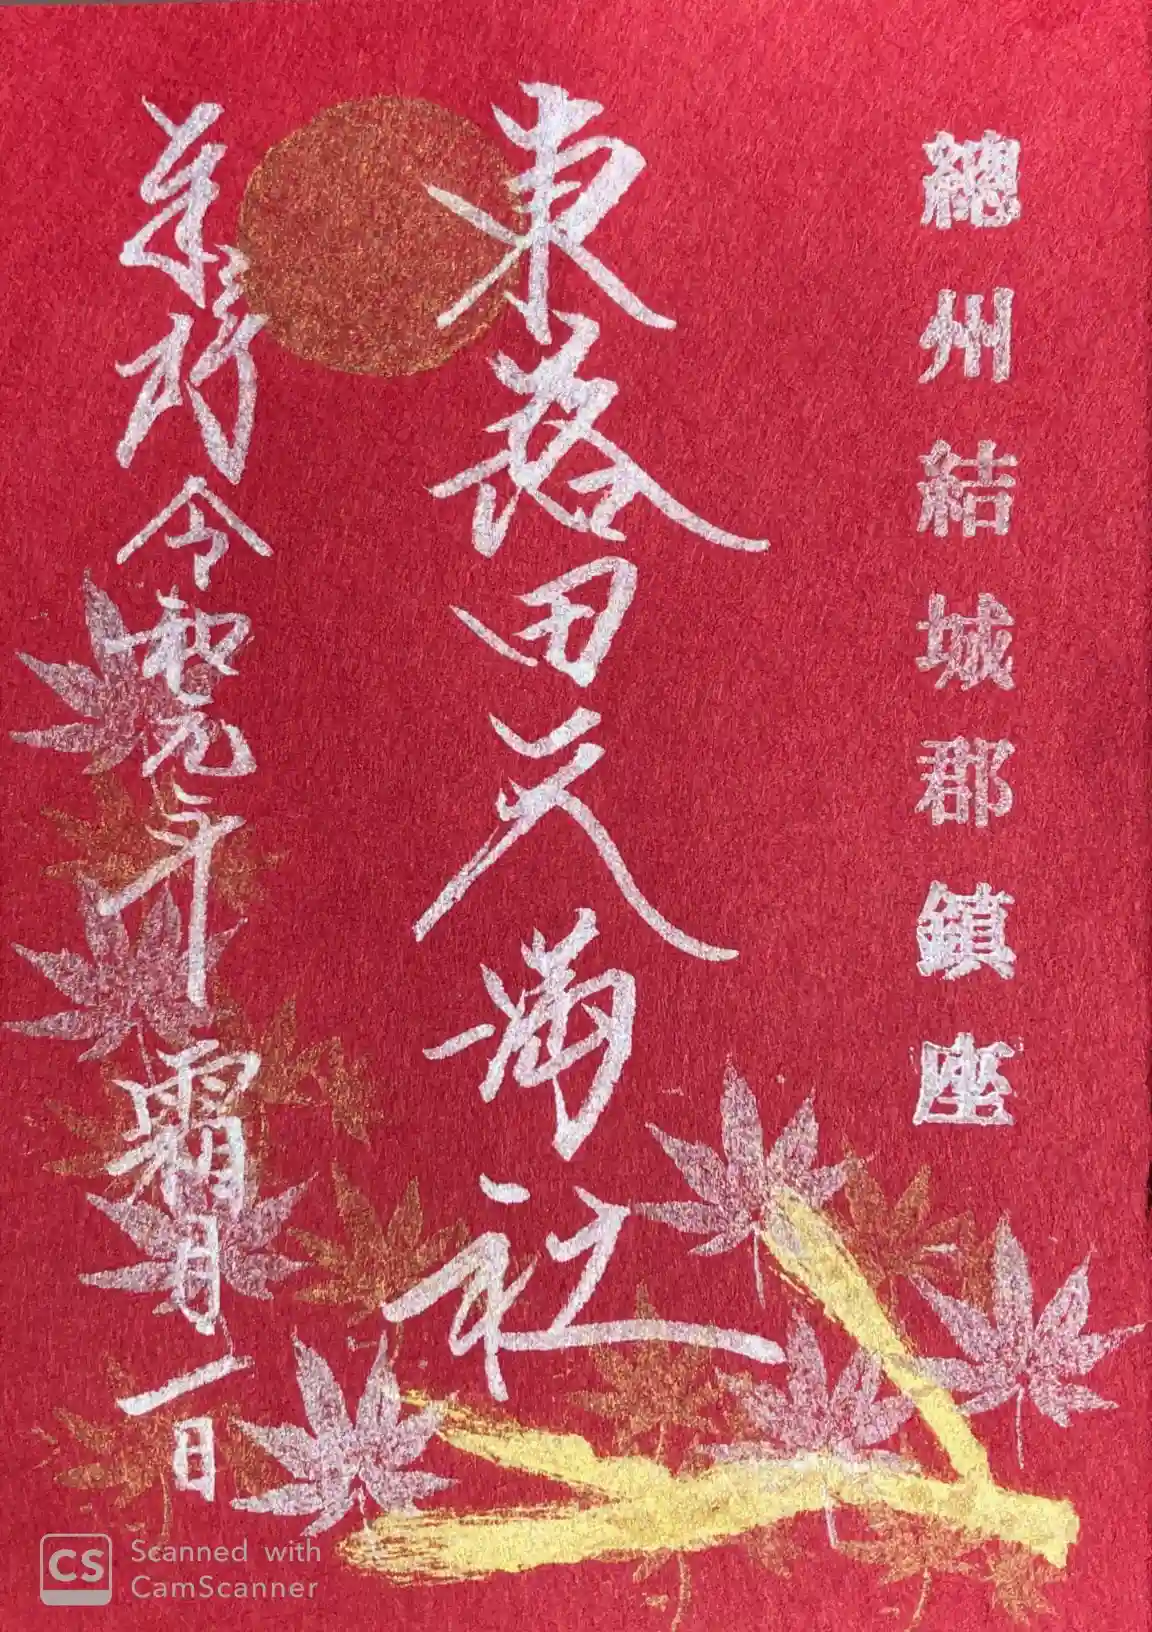 總州結城郡鎮座
東蕗田天満社
奉拝 令和元年 霜月一日
CS Scanned with
CamScanner